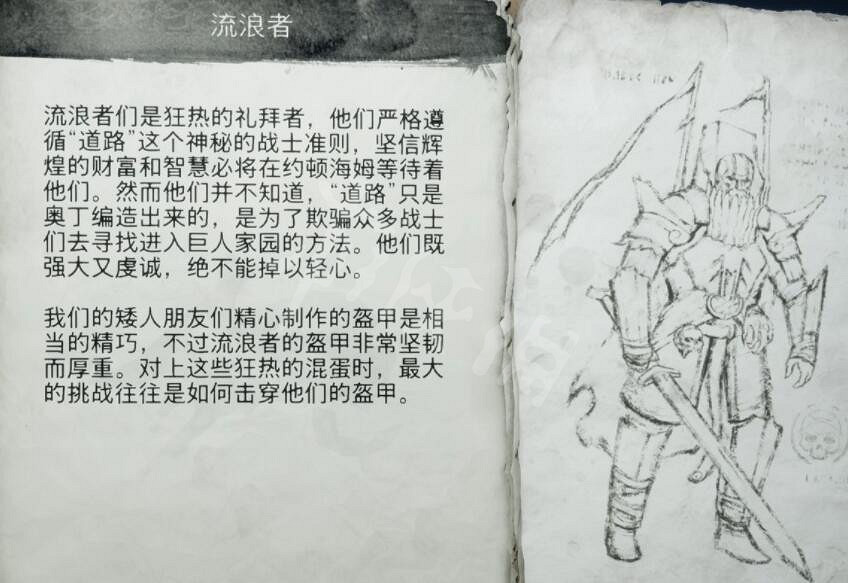 流浪者
流浪者们是狂热的礼拜者，他们严格遵
循“道路”这个神秘的战士准则，坚信辉
煌的财富和智慧必将在约顿海姆等待着
他们。然而他们并不知道，“道路”只是
奥丁编造出来的，是为了欺骗众多战士
们去寻找进入巨人家园的方法。他们既
强大又虔诚，绝不能掉以轻心。
我们的矮人朋友们精心制作的盔甲是相
当的精巧，不过流浪者的盔甲非常坚韧
而厚重。对上这些狂热的混蛋时，最大
的挑战往往是如何击穿他们的盔甲。